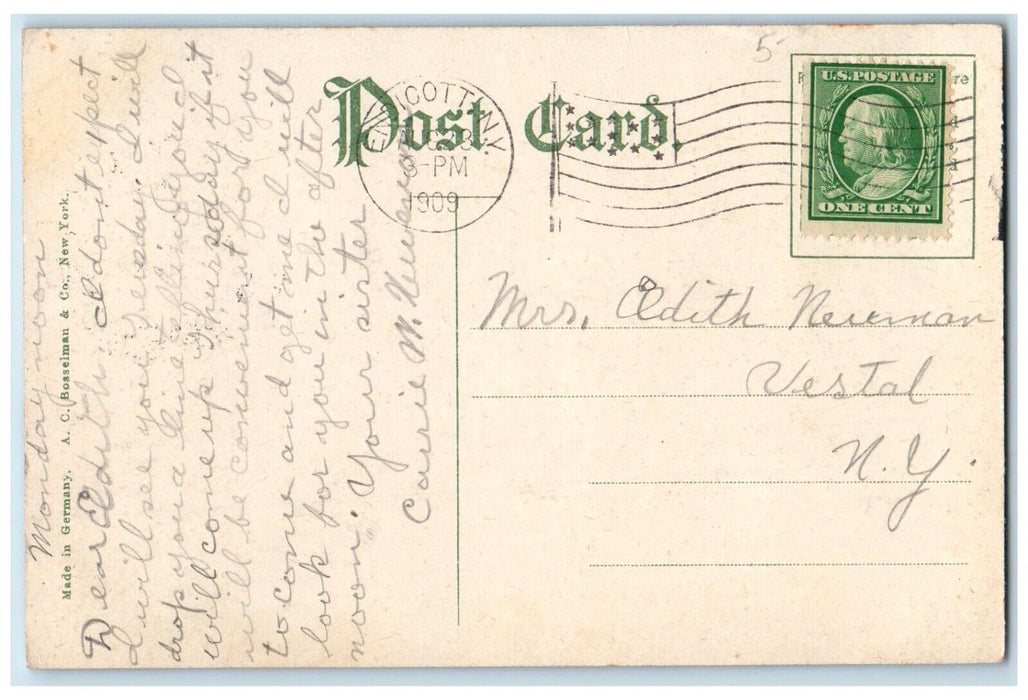 Post Card.
ENDICOTT, N.Y.
3-PM
1909
5
U.S. POSTAGE
ONE CENT
Made in Germany. A. C. Bosselman & Co., New York.
Monday noon
Dear Edith. I dont expect
I will see you Tuesday. I will
drop you a line telling you I
will come up Thursday if it
will be convenient for you
to come and get me I will
look for you in the after
noon. Your sister
Carrie M. Newman
Mrs. Edith Newman
Vestal
N.Y.